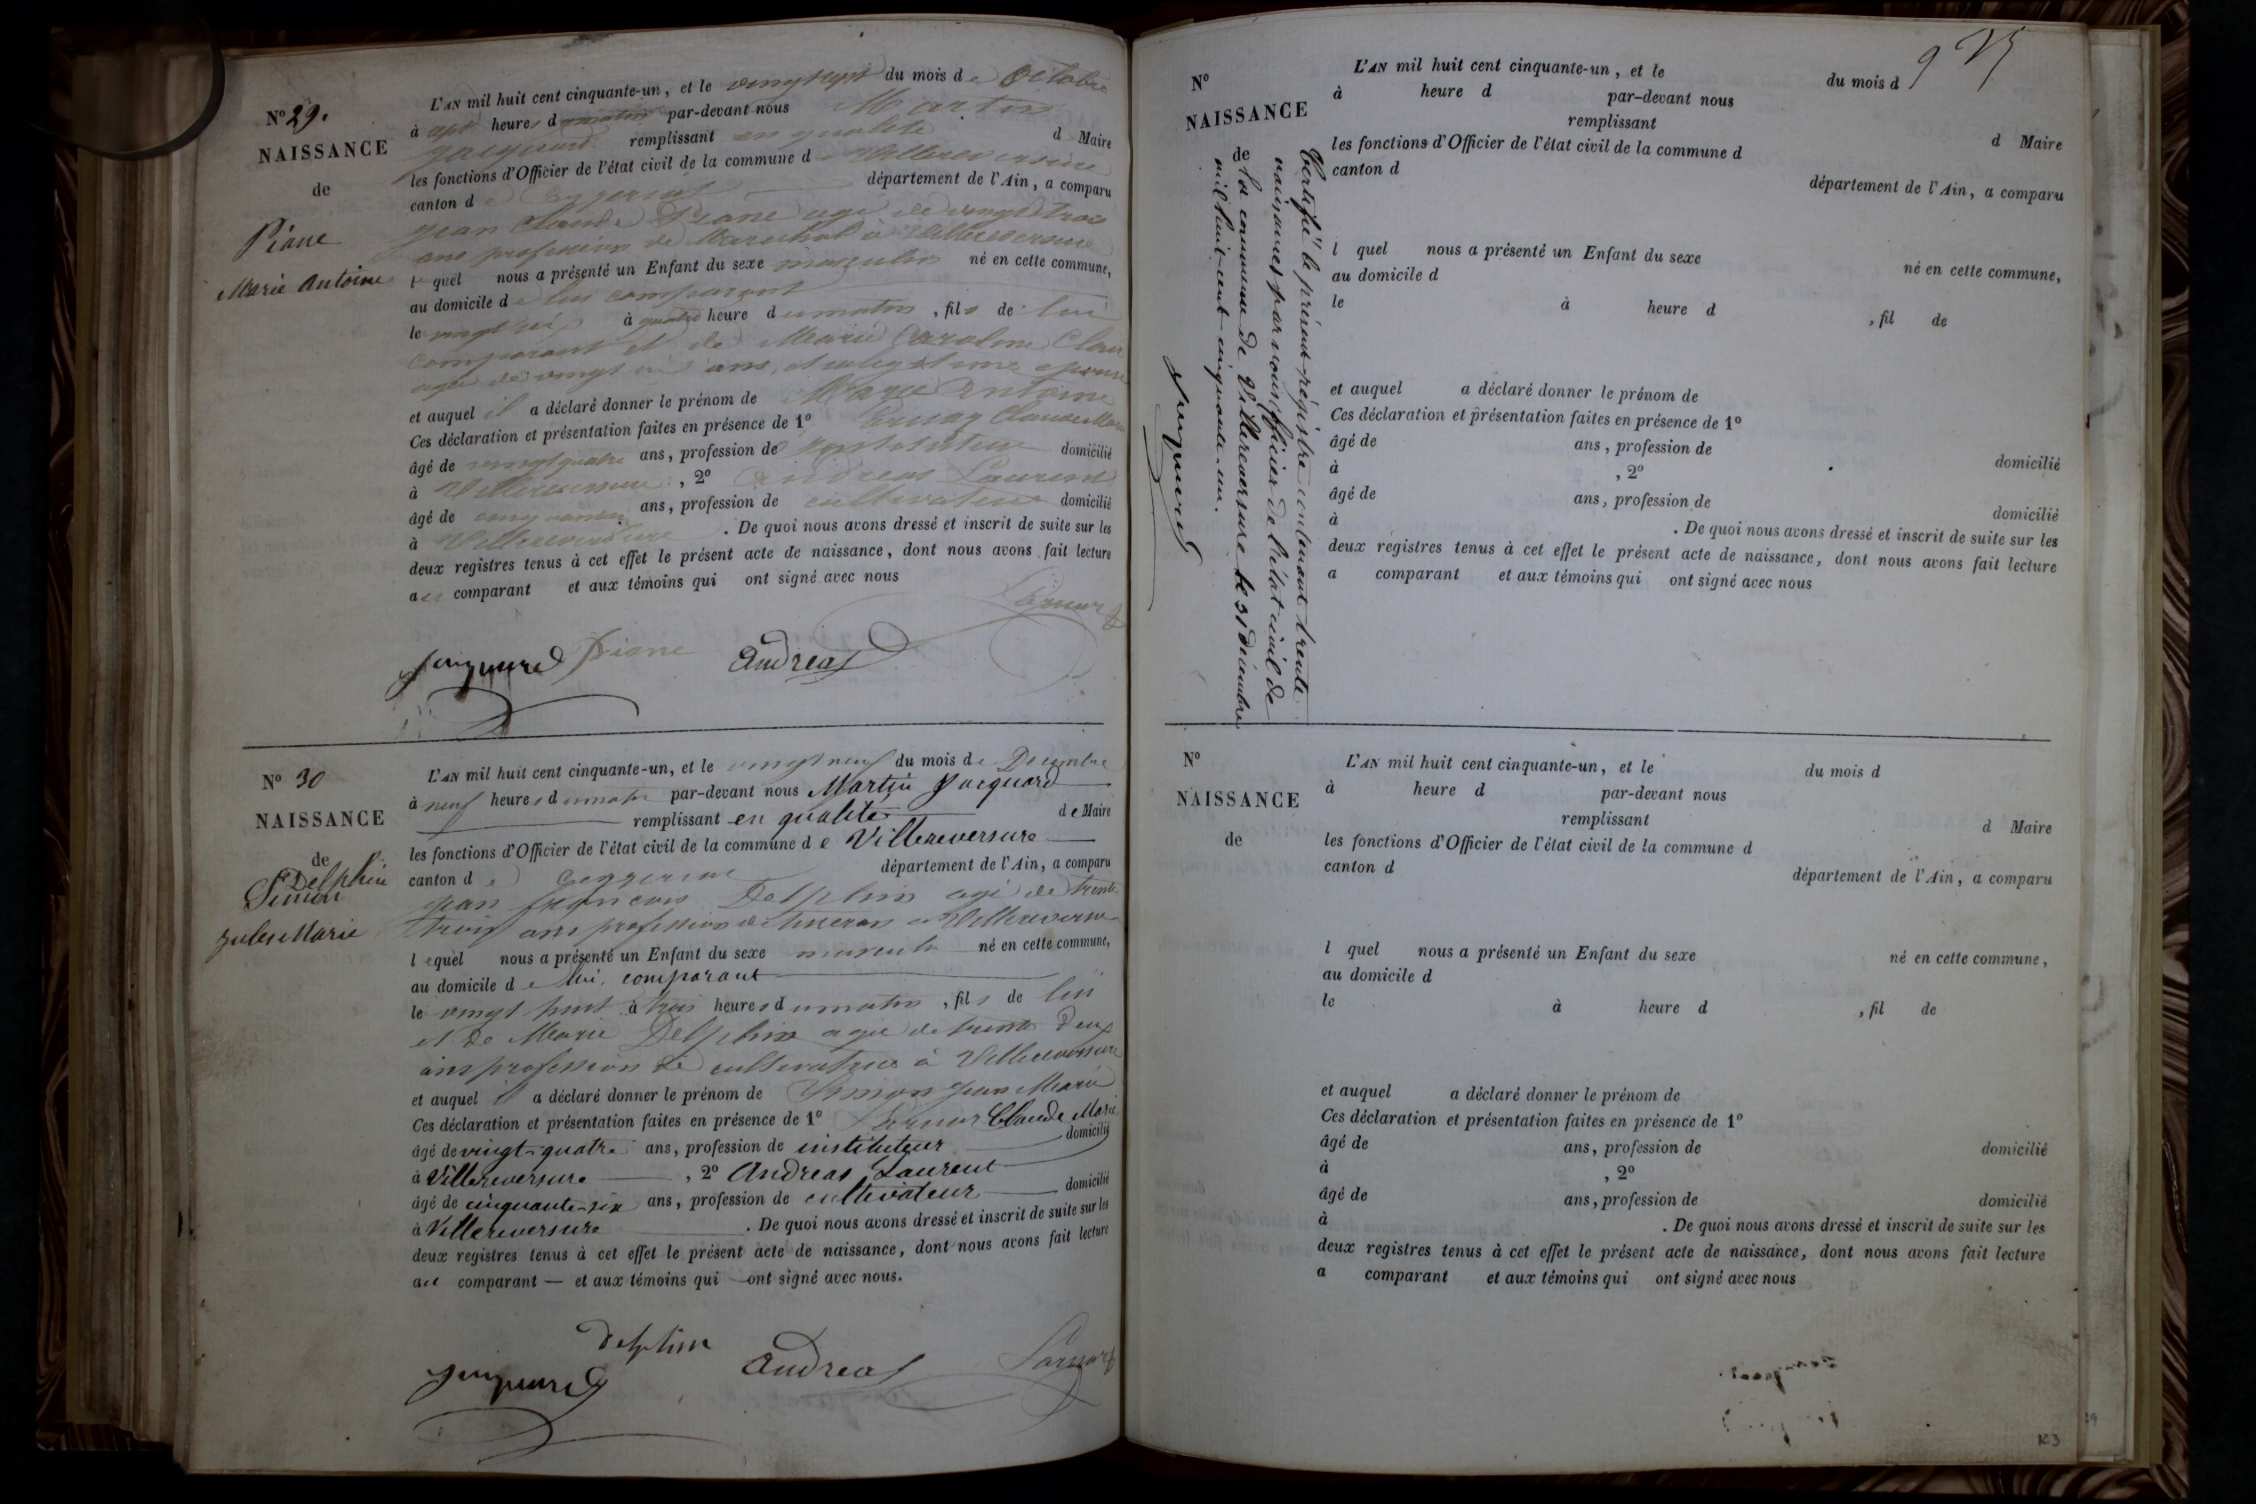 N° 29.
NAISSANCE
de
Piane
Marie Antoine
L'AN mil huit cent cinquante-un, et le vingt sept du mois de Octobre
à sept heures du matin par-devant nous Martin
Jacquard remplissant en qualité d Maire
les fonctions d'Officier de l'état civil de la commune de Villereversure
canton de Ceyzeriat département de l'Ain, a comparu
Jean Claude Piane agé de vingt trois
ans profession de Marechal à Villereversure
lequel nous a présenté un Enfant du sexe masculin né en cette commune,
au domicile de lui comparant
le vingt six à quatre heure du matin, fils de lui
comparant et de Marie Caroline Clair
agée de vingt ans, et sa légitime épouse
et auquel il a déclaré donner le prénom de Marie Antoine
Ces déclaration et présentation faites en présence de 1° Claude Marie
âgé de vingt quatre ans, profession de instituteur domicilié
à Villereversure, 2° andreas Laurent
âgé de ans, profession de cultivateur domicilié
à Villereversure. De quoi nous avons dressé et inscrit de suite sur les
deux registres tenus à cet effet le présent acte de naissance, dont nous avons fait lecture
au comparant et aux témoins qui ont signé avec nous
Jacquard Piane andreas
N° 30
NAISSANCE
de
Delphin
Simon
Jules Marie
L'AN mil huit cent cinquante-un, et le vingt neuf du mois de Decembre
à neuf heures du matin par-devant nous Martin Jacquard
remplissant en qualité de Maire
les fonctions d'Officier de l'état civil de la commune de Villereversure
canton de Ceyzeriat département de l'Ain, a comparu
jean françois Delphin agé de trente
trois ans profession de tisseran a Villereversure
lequel nous a présenté un Enfant du sexe masculin né en cette commune,
au domicile de lui comparant
le vingt huit à trois heures du matin, fils de lui
et de Marie Delphin agée de trente deux
ans profession de cultivatrice à Villereversure
et auquel il a déclaré donner le prénom de Simon Marie
Ces déclaration et présentation faites en présence de 1° Claude Marie
âgé de vingt-quatre ans, profession de instituteur domicilié
à Villereversure, 2° Andreas Laurent
âgé de cinquante-six ans, profession de cultivateur domicilié
à Villereversure. De quoi nous avons dressé et inscrit de suite sur les
deux registres tenus à cet effet le présent acte de naissance, dont nous avons fait lecture
au comparant — et aux témoins qui ont signé avec nous.
Delphin
Jacquard andreas
N°
NAISSANCE
de
L'AN mil huit cent cinquante-un, et le du mois d
à heure d par-devant nous
remplissant d Maire
les fonctions d'Officier de l'état civil de la commune d
canton d département de l'Ain, a comparu
l quel nous a présenté un Enfant du sexe né en cette commune,
au domicile d
le à heure d, fil de
et auquel a déclaré donner le prénom de
Ces déclaration et présentation faites en présence de 1°
âgé de ans, profession de domicilié
à, 2°
âgé de ans, profession de domicilié
à. De quoi nous avons dressé et inscrit de suite sur les
deux registres tenus à cet effet le présent acte de naissance, dont nous avons fait lecture
a comparant et aux témoins qui ont signé avec nous
Certifié le présent régistre contenant trente
naissances par nous officier de l'état civil de
la commune de Villereversure le 31 décembre
mil huit-cent-cinquante-un.
Jacquard
N°
NAISSANCE
de
L'AN mil huit cent cinquante-un, et le du mois d
à heure d par-devant nous
remplissant d Maire
les fonctions d'Officier de l'état civil de la commune d
canton d département de l'Ain, a comparu
l quel nous a présenté un Enfant du sexe né en cette commune,
au domicile d
le à heure d, fil de
et auquel a déclaré donner le prénom de
Ces déclaration et présentation faites en présence de 1°
âgé de ans, profession de domicilié
à, 2°
âgé de ans, profession de domicilié
à. De quoi nous avons dressé et inscrit de suite sur les
deux registres tenus à cet effet le présent acte de naissance, dont nous avons fait lecture
a comparant et aux témoins qui ont signé avec nous